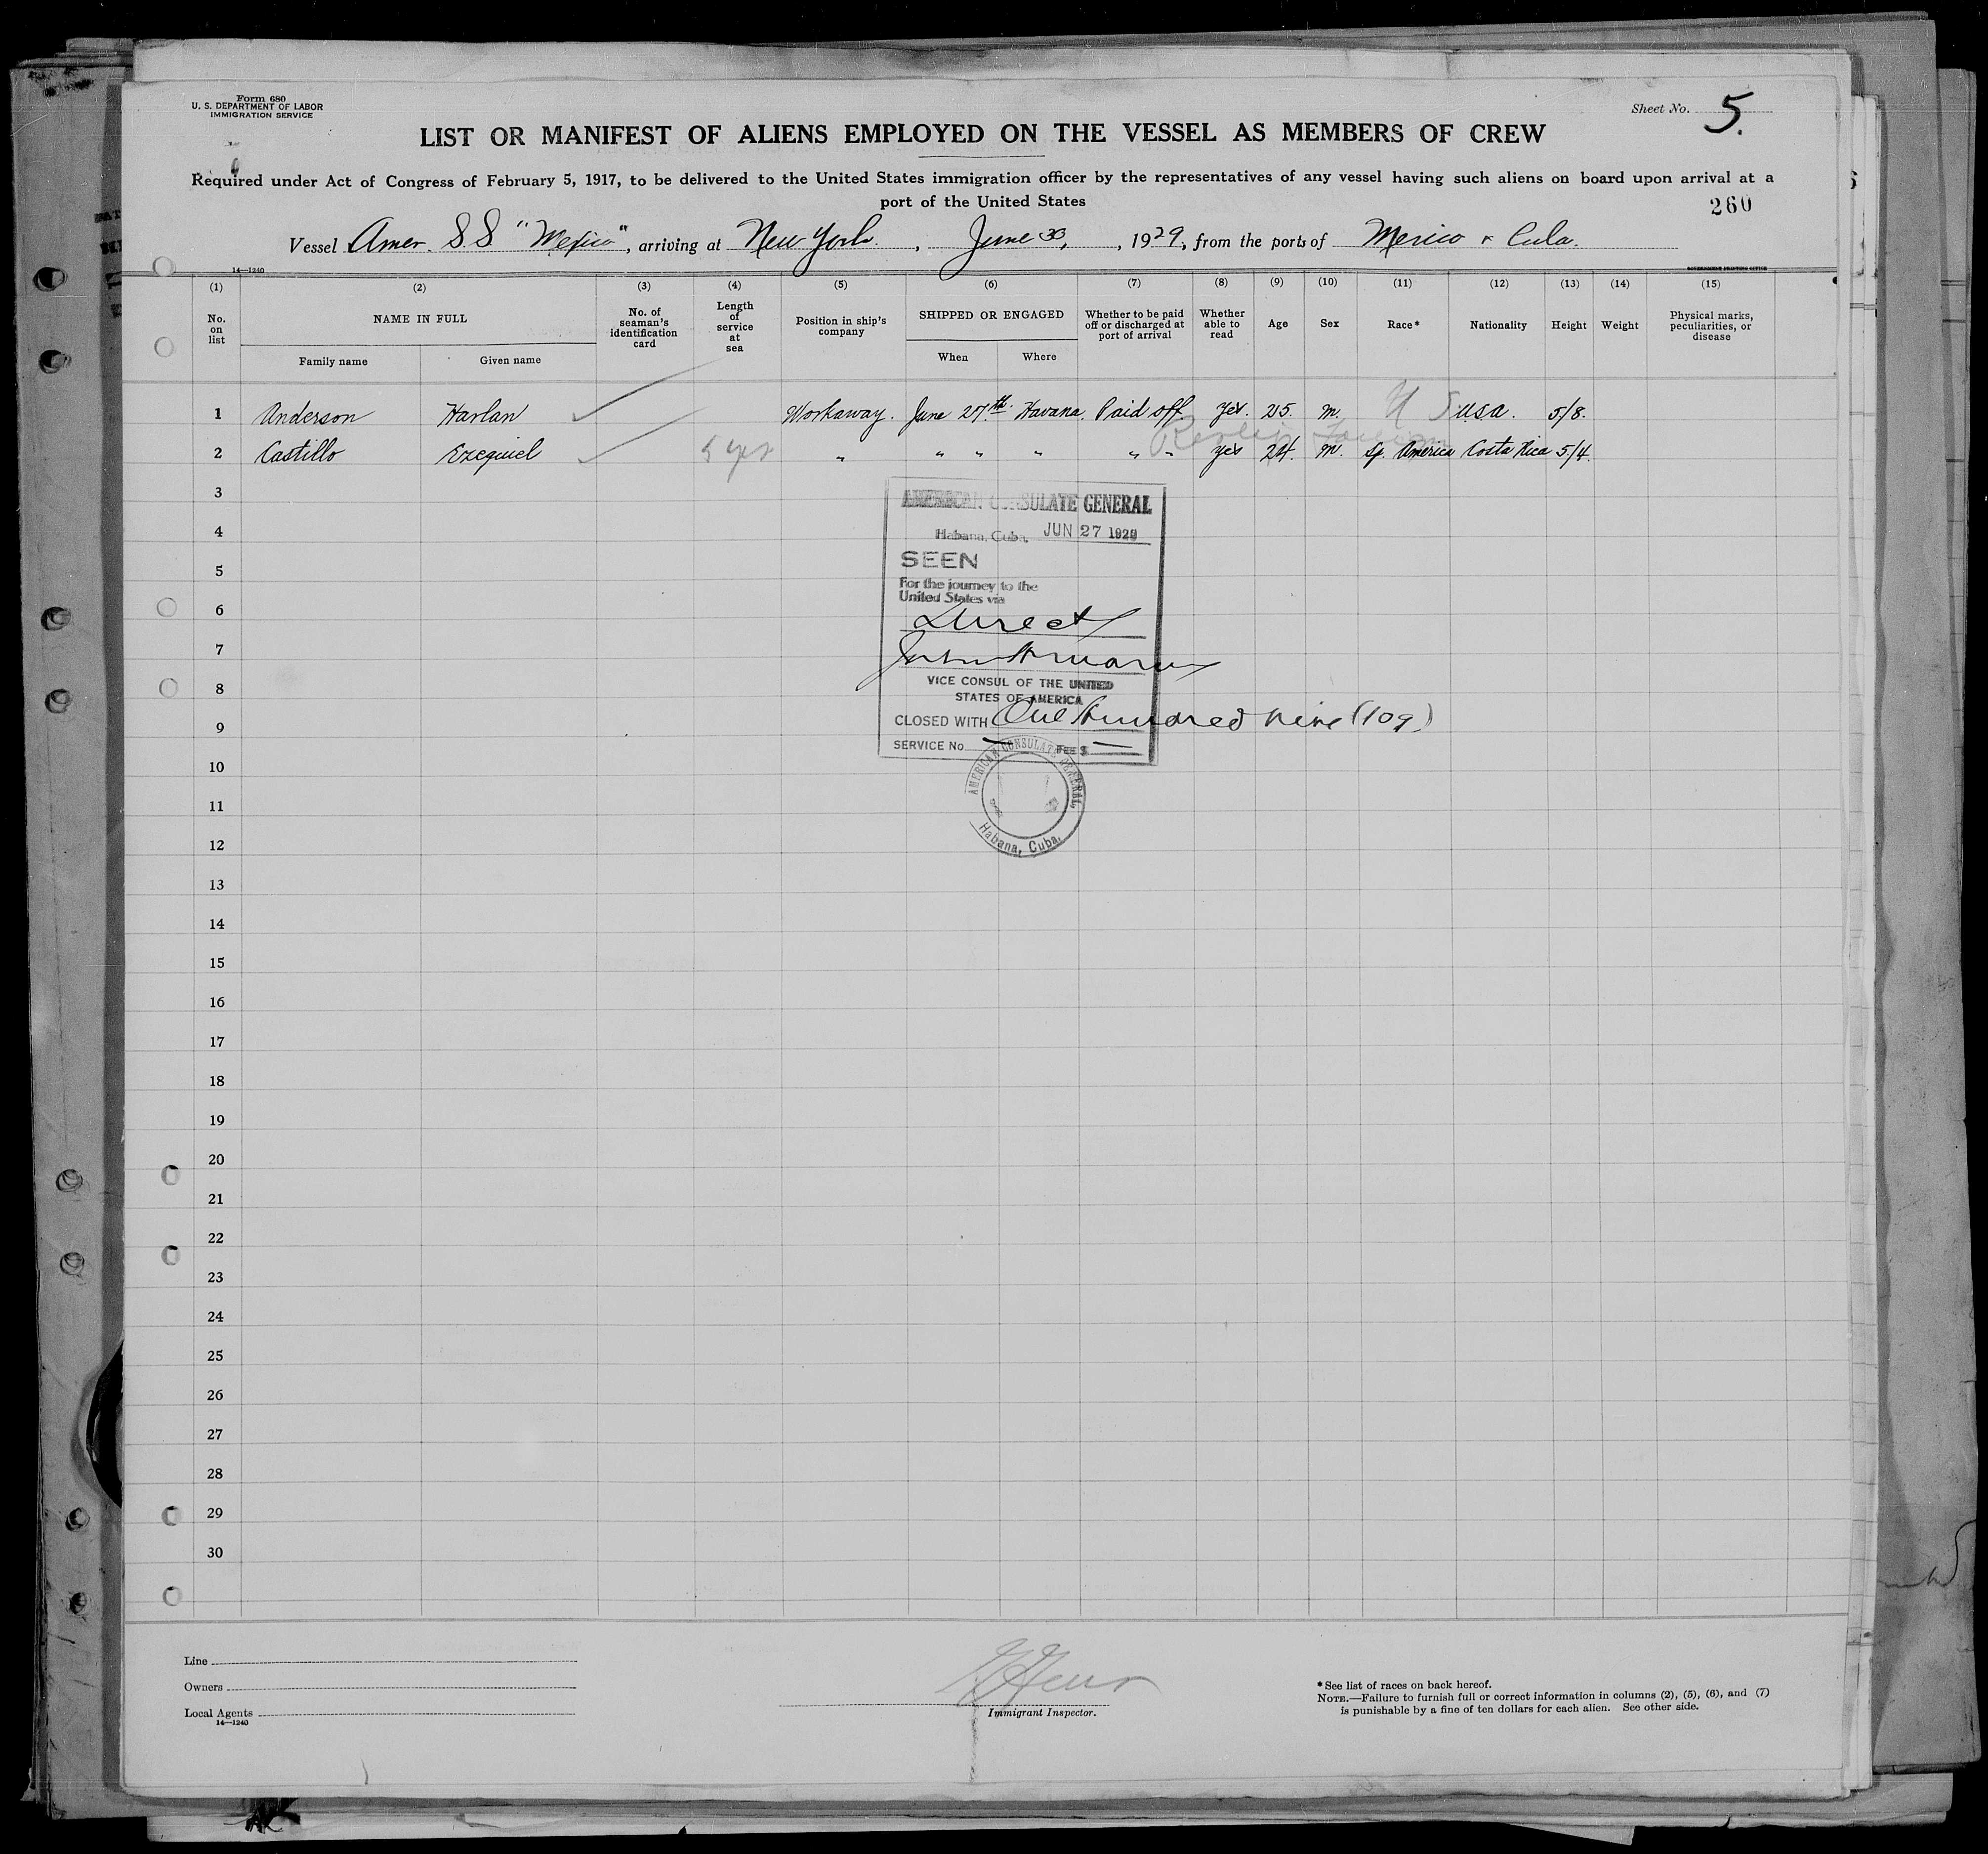 Form 680
U. S. DEPARTMENT OF LABOR
IMMIGRATION SERVICE
Sheet No. 5.
LIST OR MANIFEST OF ALIENS EMPLOYED ON THE VESSEL AS MEMBERS OF CREW
Required under Act of Congress of February 5, 1917, to be delivered to the United States immigration officer by the representatives of any vessel having such aliens on board upon arrival at a
port of the United States
260
Vessel Amer. S.S "Mexico", arriving at New York. , June 30, , 1929, from the ports of Mexico & Cuba.
14—1240
GOVERNMENT PRINTING OFFICE
(1) (2) (3) (4) (5) (6) (7) (8) (9) (10) (11) (12) (13) (14) (15)
No. on list
NAME IN FULL
Family name
Given name
No. of seaman's identification card
Length of service at sea
Position in ship's company
SHIPPED OR ENGAGED
When
Where
Whether to be paid off or discharged at port of arrival
Whether able to read
Age
Sex
Race*
Nationality
Height
Weight
Physical marks, peculiarities, or disease
1 Anderson Harlan Workaway. June 27th. Havana. Paid off. Yes. 25. m. U S usa. 5/8.
2 Castillo Ezequiel 5 yrs " " " " " " yes 24. m. Sp. America Costa Rica 5/4.
3
AMERICAN CONSULATE GENERAL
4
Habana, Cuba, JUN 27 1929
SEEN
5
For the journey to the
United States via
6
Direct
7
VICE CONSUL OF THE UNITED
8
STATES OF AMERICA
CLOSED WITH One Hundred nine (109)
9
SERVICE No. — FEE $ —
10
AMERICAN CONSULATE GENERAL,
11
Habana, Cuba.
12
13
14
15
16
17
18
19
20
21
22
23
24
25
26
27
28
29
30
Line
Owners
Local Agents
14—1240
Immigrant Inspector.
*See list of races on back hereof.
NOTE.—Failure to furnish full or correct information in columns (2), (5), (6), and (7)
is punishable by a fine of ten dollars for each alien. See other side.